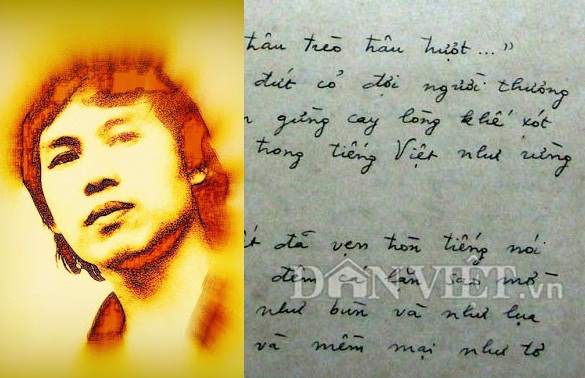 trâu trèo trâu trượt..."
dứt cỏ đợi người thương
gừng cay lòng khế xót
trong tiếng Việt như rừng
đã vẹn tròn tiếng nói
đêm lần sao mờ
như bùn và như lụa
và mềm mại như tơ
DÂNVIỆT.vn